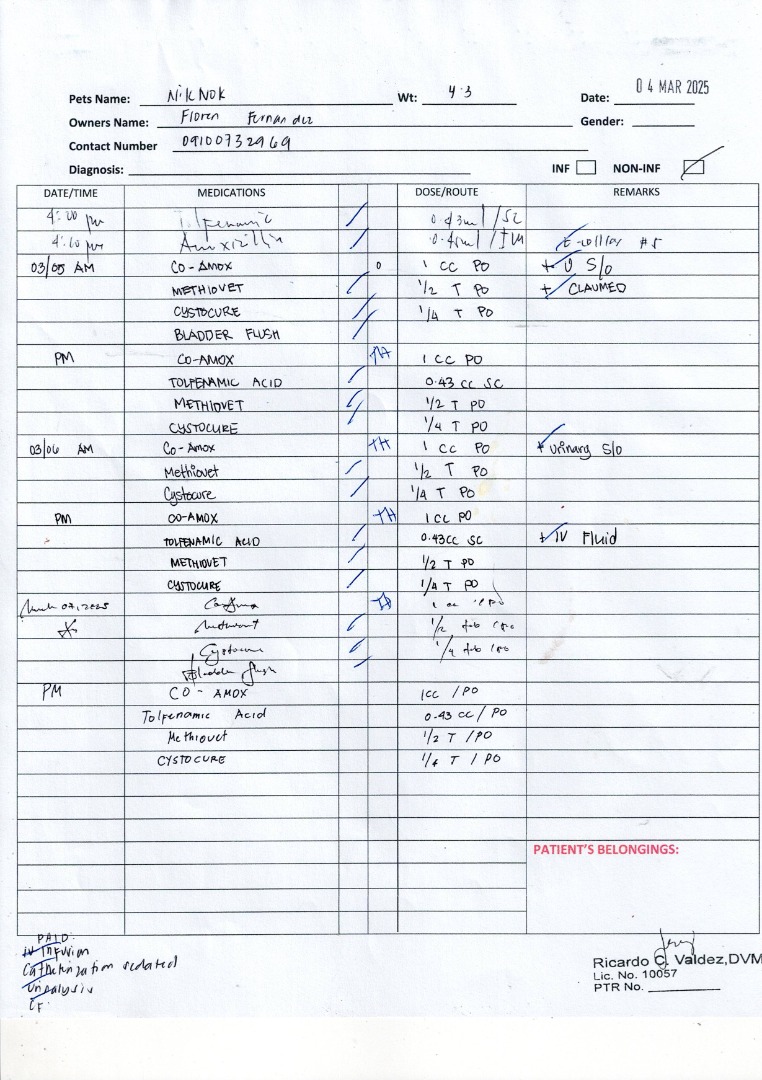 04 MAR 2025
Pets Name: NikNok Wt: 4.3 Date:
Owners Name: Floren Fernandez Gender:
Contact Number 09100732969
Diagnosis: INF NON-INF
DATE/TIME MEDICATIONS DOSE/ROUTE REMARKS
4:00 pm Tolfenamic 0.43ml / SC
4:10 pm Amoxicillin 0.4ml / IM E-collar #5
03/05 AM CO-AMOX 1 CC PO + U S/o
METHIOVET 1/2 T PO + CLAUMED
CYSTOCURE 1/4 T PO
BLADDER FLUSH
PM CO-AMOX TH 1 CC PO
TOLFENAMIC ACID 0.43 CC SC
METHIOVET 1/2 T PO
CYSTOCURE 1/4 T PO
03/06 AM Co-Amox TH 1 CC PO + Urinary S/o
Methiovet 1/2 T PO
Cystocure 1/4 T PO
PM CO-AMOX TH 1 CC PO
TOLFENAMIC ACID 0.43CC SC + IV Fluid
METHIOVET 1/2 T PO
CYSTOCURE 1/4 T PO
March 07, 2025 1 cc PO
1/2 tab PO
Cystocure 1/4 tab PO
Bladder flush
PM CO-AMOX 1CC /PO
Tolfenamic Acid 0.43 CC / PO
Methiovet 1/2 T /PO
CYSTOCURE 1/4 T / PO
PATIENT'S BELONGINGS:
PAID:
IV Infusion
Catheterization sedated
Urinalysis
CF
Ricardo C. Valdez, DVM
Lic. No. 10057
PTR No.